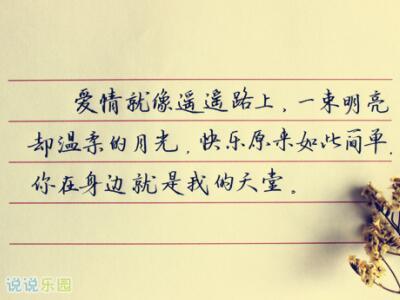 爱情就像遥遥路上，一束明亮
却温柔的月光，快乐原来如此简单，
你在身边就是我的天堂。
说说乐园